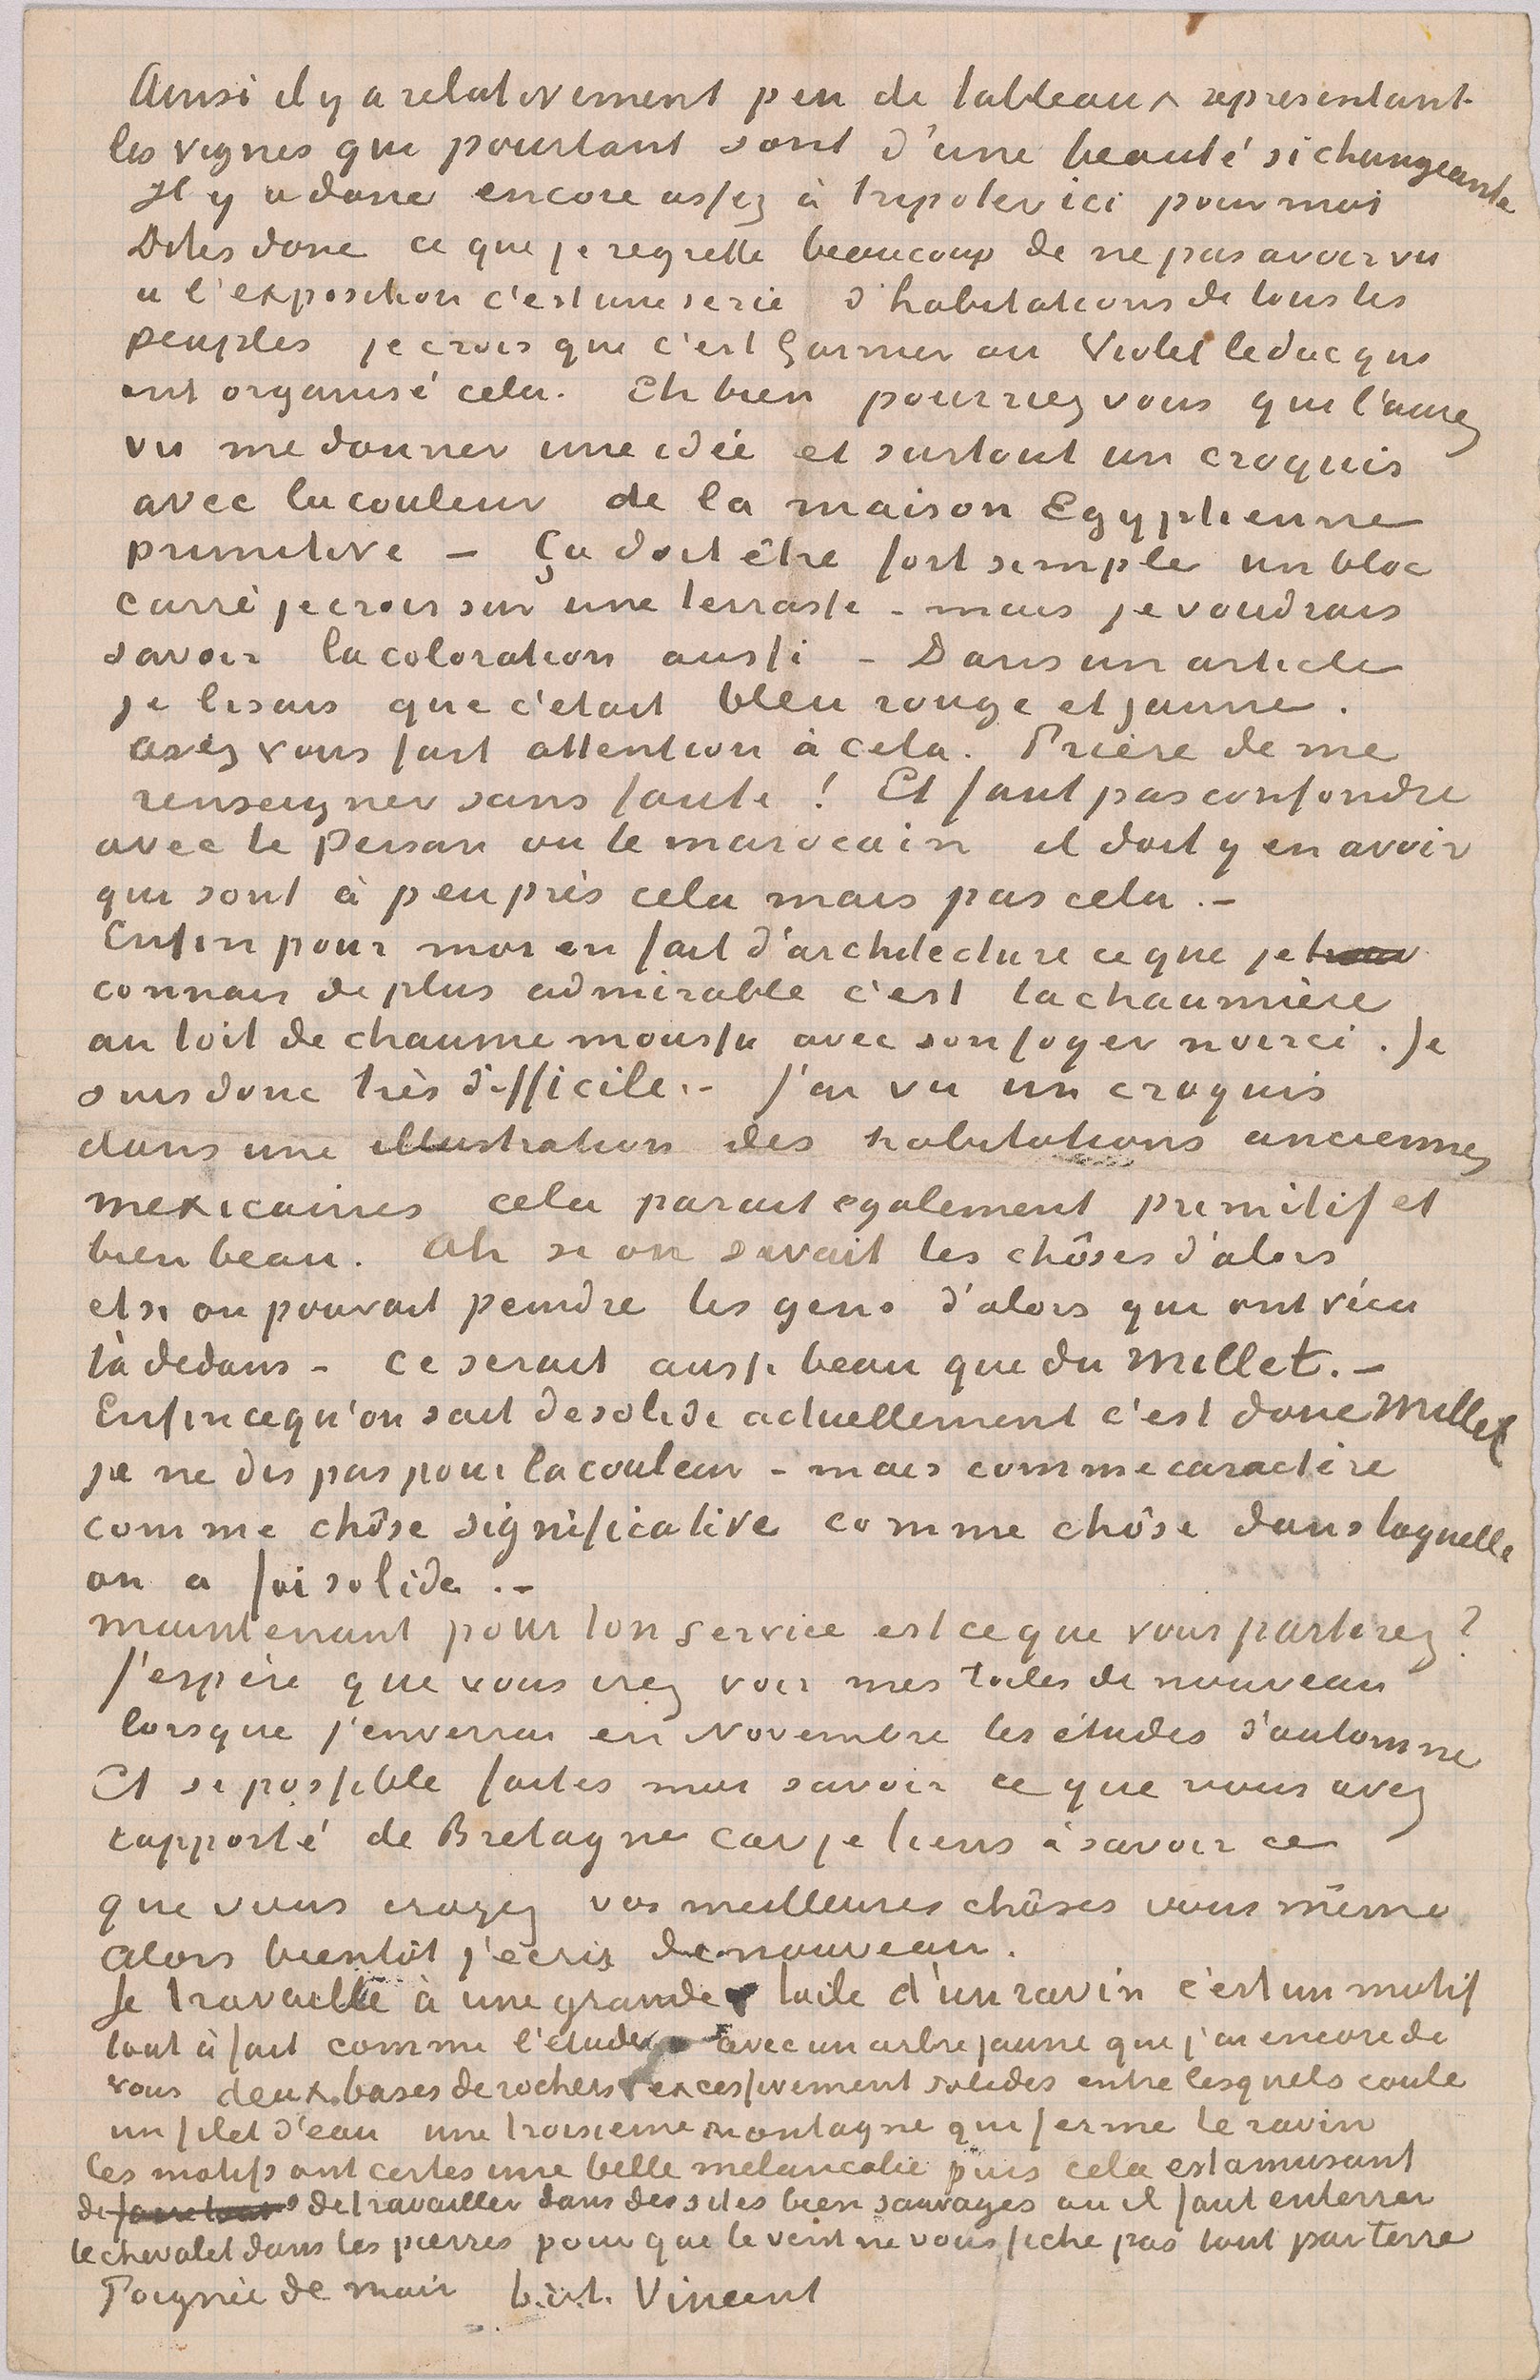 Ainsi il y a relativement peu de tableaux representant
les vignes qui pourtant sont d'une beauté si changeante
Il y a donc encore assez à tripoter ici pour moi
Dites donc ce que je regrette beaucoup de ne pas avoir vu
a l'exposition c'est une serie d'habitations de tous les
peuples je crois que c'est Garnier ou Violet leduc qui
ont organisé cela. Eh bien pourriez vous qui l'aurez
vu me donner une idée et surtout un croquis
avec la couleur de la maison Egyptienne
primitive – Ça doit être fort simple un bloc
carré je crois sur une terrasse – mais je voudrais
savoir la coloration aussi – Dans un article
je lisais que c'etait bleu rouge et jaune.
avez vous fait attention à cela. Prière de me
renseigner sans faute ! Et faut pas confondre
avec le Persan ou le marocain il doit y en avoir
qui sont à peu près cela mais pas cela.–
Enfin pour moi en fait d'architecture ce que je
connais de plus admirable c'est la chaumière
au toit de chaume moussu avec son foyer noirci. Je
suis donc très difficile.– J'ai vu un croquis
dans une illustration des habitations anciennes
mexicaines cela parait egalement primitif et
bien beau. Ah si on savait les chôses d'alors
et si on pouvait peindre les gens d'alors qui ont vécu
là dedans – ce serait aussi beau que du Millet.–
Enfin ce qu'on sait de solide actuellement c'est donc Millet
je ne dis pas pour la couleur – mais comme caractère
comme chôse significative comme chôse dans laquelle
on a foi solide.–
maintenant pour ton service est ce que vous partirez ?
J'espère que vous irez voir mes toiles de nouveau
lorsque j'enverrai en Novembre les études d'automne
Et si possible faites moi savoir ce que vous avez
rapporté de Bretagne car je tiens à savoir ce
que vous croyez vos meilleures chôses vous même
Alors bientôt j'ecris de nouveau.
Je travaille à une grande toile d'un ravin c'est un motif
tout à fait comme l'étude avec un arbre jaune que j'ai encore de
vous deux bases de rochers excessivement solides entre lesquels coule
un filet d'eau une troisieme montagne qui ferme le ravin
ces motifs ont certes une belle melancolie puis cela est amusant
de travailler dans des sites bien sauvages ou il faut enterrer
le chevalet dans les pierres pour que le vent ne vous fiche pas tout par terre
Poignée de main b. à t. Vincent